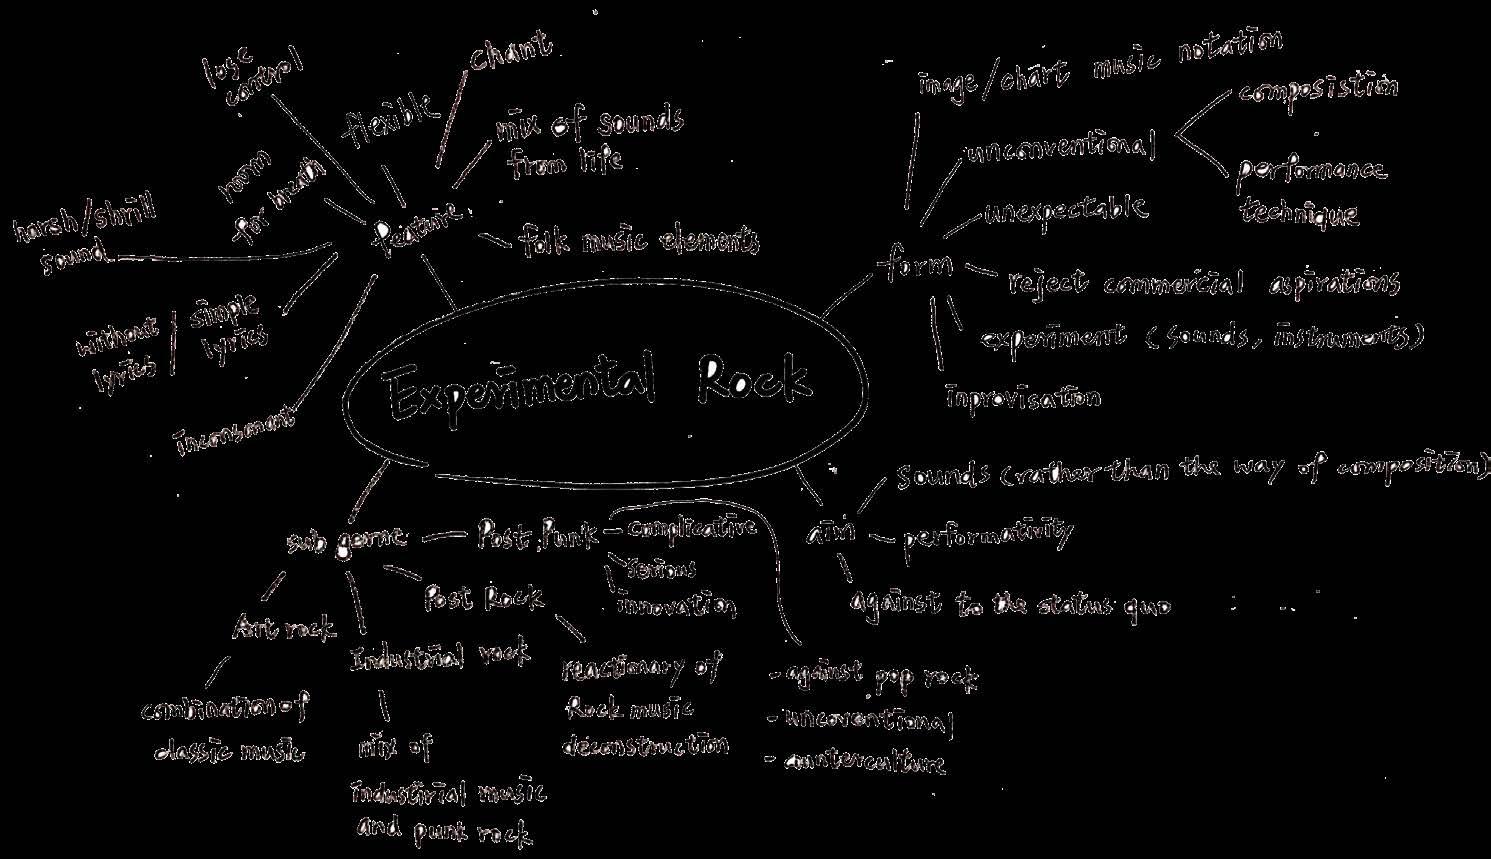 Experimental Rock
feature
lose
control
flexible
chant
mix of sounds
from life
room
for breath
harsh/shrill
sound
folk music elements
without
lyrics
simple
lyrics
inconsonant
form
image/chart music notation
unconventional
composistion
performance
technique
unexpectable
reject commercial aspirations
experiment (sounds, instruments)
inprovisation
aim
sounds (rather than the way of composition)
performativity
against to the status quo
sub gerne
Post Punk
complicative
serious
innovation
- against pop rock
- uncoventional
- counterculture
Post Rock
reactionary of
Rock music
deconstruction
Industrial rock
mix of
industirial music
and punk rock
Art rock
combination of
classic music